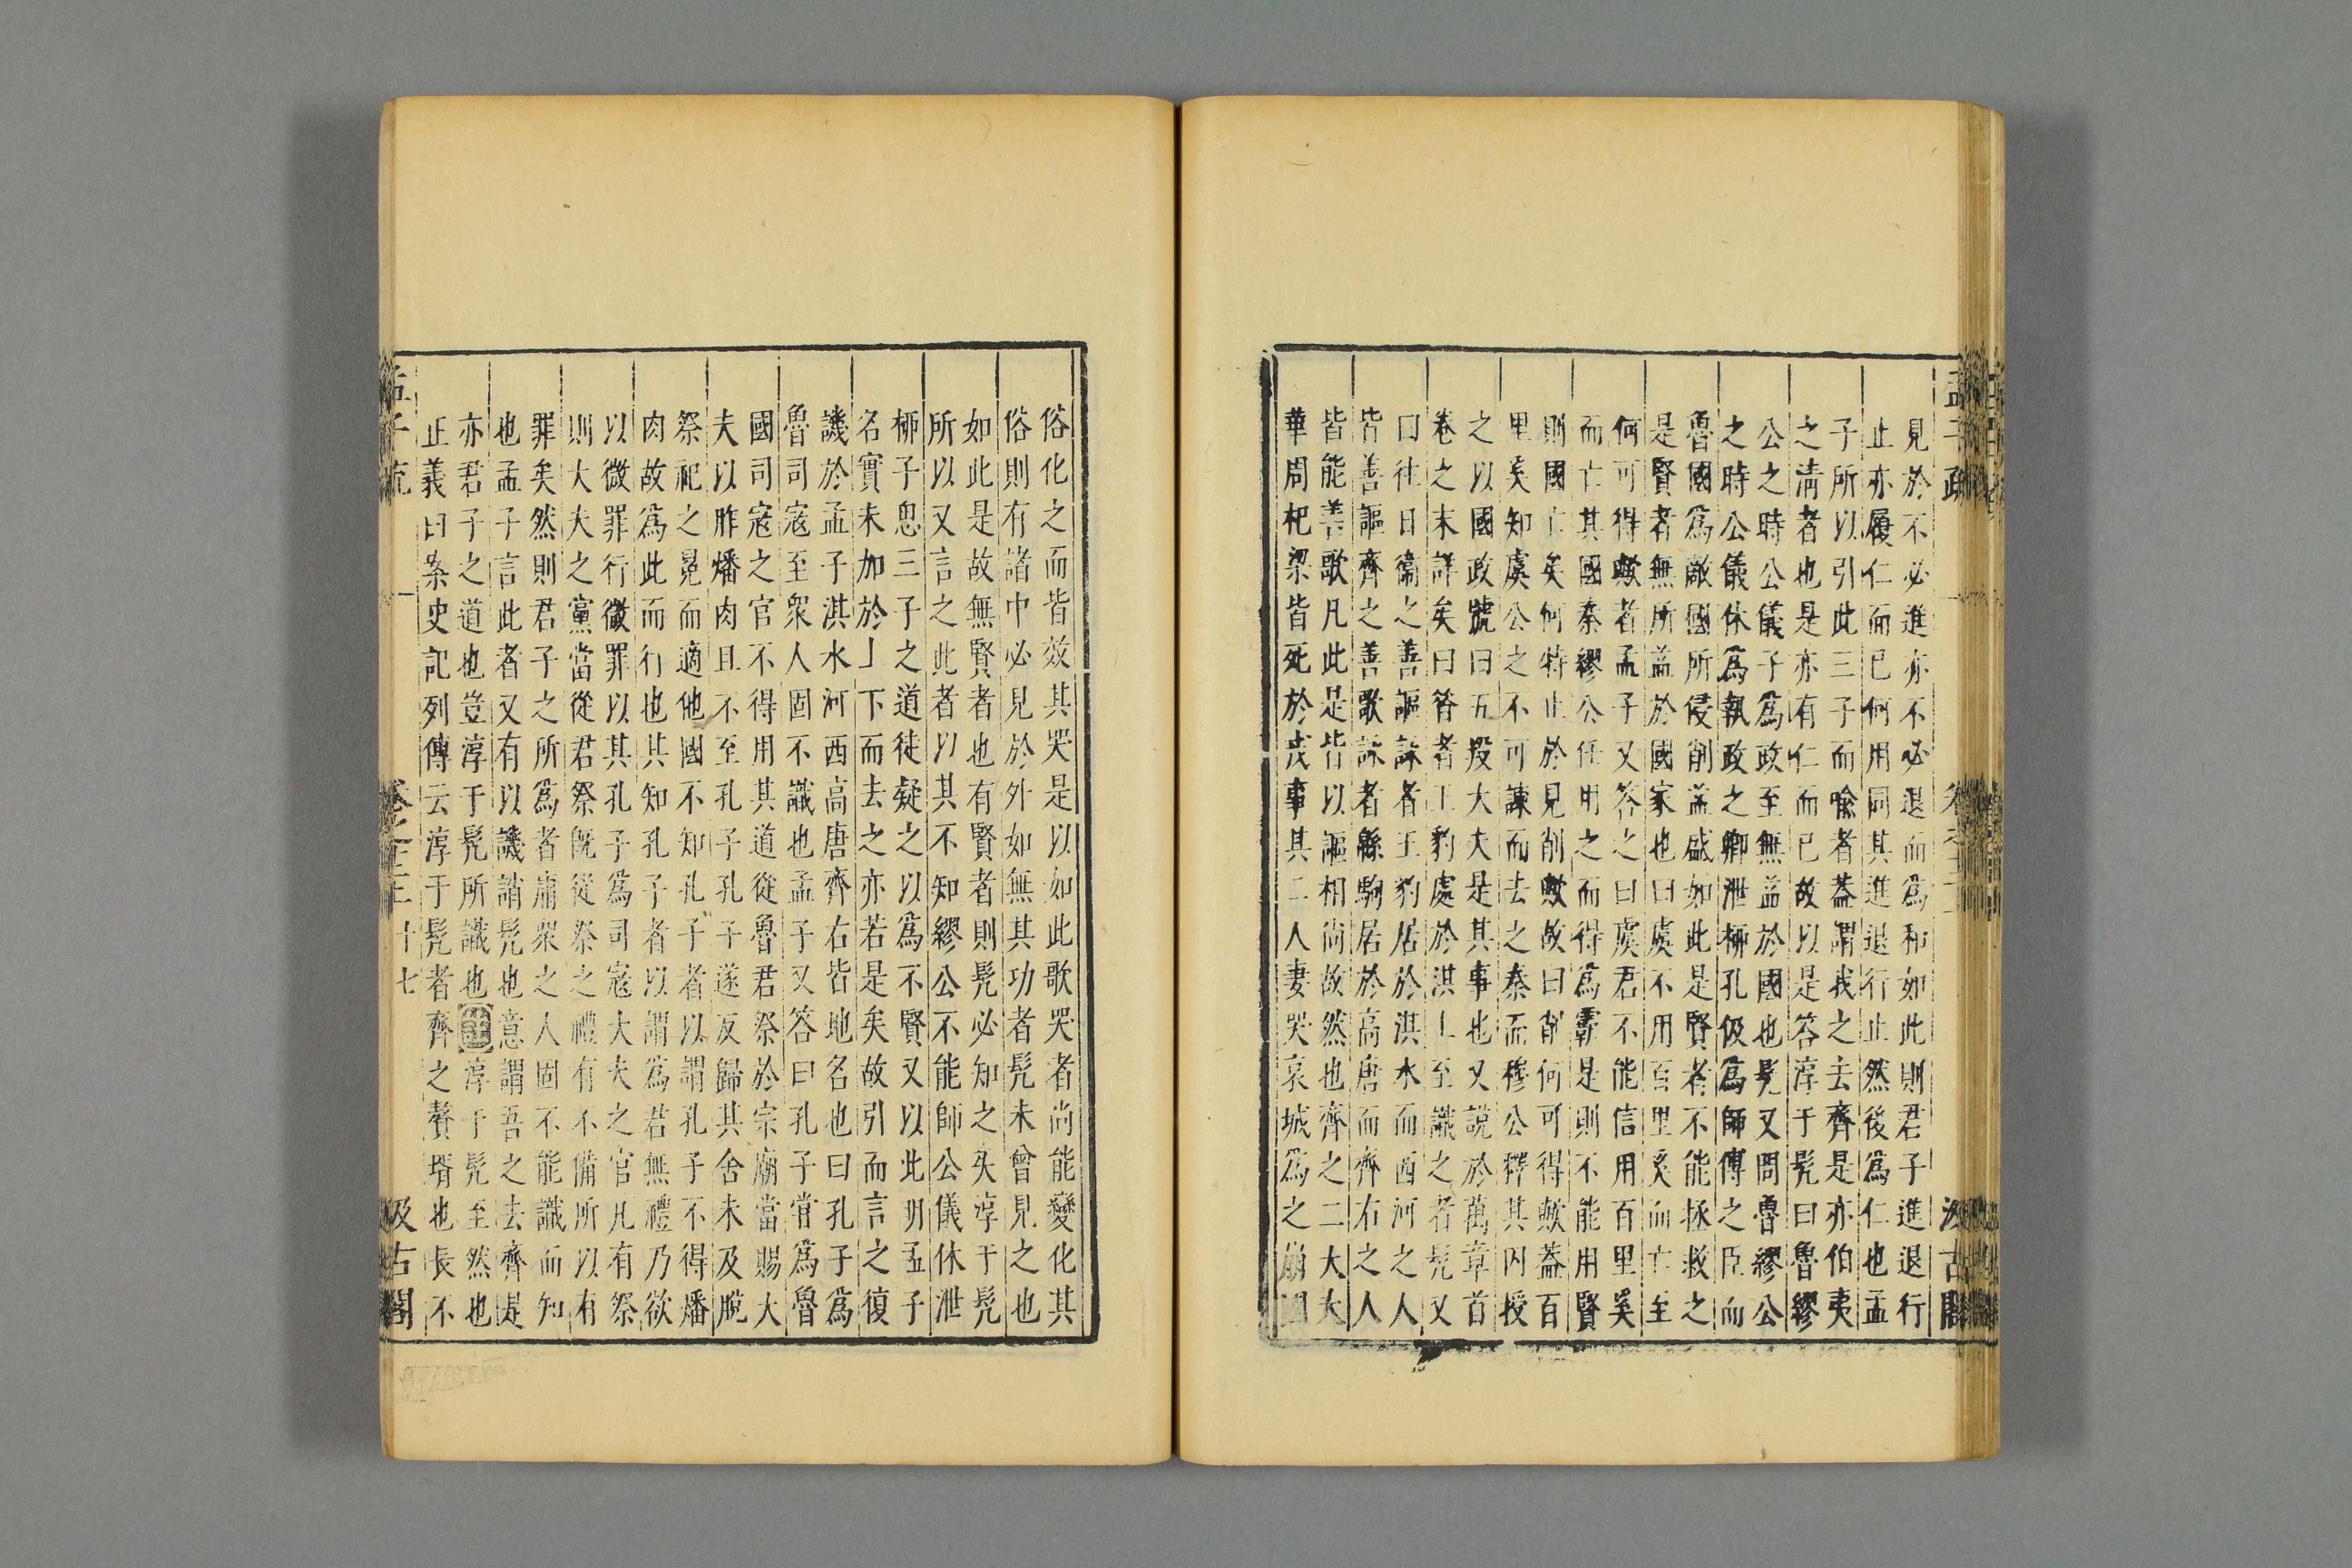 見於不必進亦不必退而爲和如此則君子進退行
止亦履仁而已何用同其進退行止然後爲仁也孟
子所以引此三子而喩者葢謂我之去齊是亦伯夷
之淸者也是亦有仁而已故以是答淳于髡曰魯繆
公之時公儀子爲政至無益於國也髡又問魯繆公
之時公儀休爲執政之卿泄柳孔伋爲師傅之臣而
魯國爲敵國所侵削益盛如此是賢者不能拯救之
是賢者無所益於國家也曰虞不用百里奚而亡至
何可得歟者孟子又答之曰虞君不能信用百里奚
而亡其國秦繆公任用之而得爲霸是則不能用賢
則國亡矣何特止於見削歟故曰削何可得歟葢百
里奚知虞公之不可諫而去之秦而穆公釋其囚授
之以國政號曰五羖大夫是其事也又說於萬章首
卷之末詳矣曰答者王豹處於淇上至識之者髡又
曰往日衞之善謳詠者王豹居於淇水而西河之人
皆善謳齊之善歌詠者緜駒居於高唐而齊右之人
皆能善歌凡此是皆以謳相尙故然也齊之二大夫
華周杞梁皆死於戎事其二人妻哭哀城爲之崩國
俗化之而皆效其哭是以如此歌哭者尙能變化其
俗則有諸中必見於外如無其功者髡未曾見之也
如此是故無賢者也有賢者則髡必知之矣淳于髡
所以又言之此者以其不知繆公不能師公儀休泄
柳子思三子之道徒疑之以爲不賢又以此明孟子
名實未加於上下而去之亦若是矣故引而言之復
譏於孟子淇水河西高唐齊右皆地名也曰孔子爲
魯司寇至衆人固不識也孟子又答曰孔子甞爲魯
國司寇之官不得用其道從魯君祭於宗廟當賜大
夫以胙燔肉且不至孔子孔子遂反歸其舍未及脫
祭祀之冕而適他國不知孔子者以謂孔子不得燔
肉故爲此而行也其知孔子者以謂爲君無禮乃欲
以微罪行微罪以其孔子爲司寇大夫之官凡有祭
則大夫之黨當從君祭旣從祭之禮有不備所以有
罪矣然則君子之所爲者庸衆之人固不能識而知
也孟子言此者又有以譏誚髡也意謂吾之去齊是
亦君子之道也豈淳于髡所識也註淳于髡至然也
正義曰案史記列傳云淳于髡者齊之贅壻也長不
孟子疏 卷之十二 十七 汲古閣